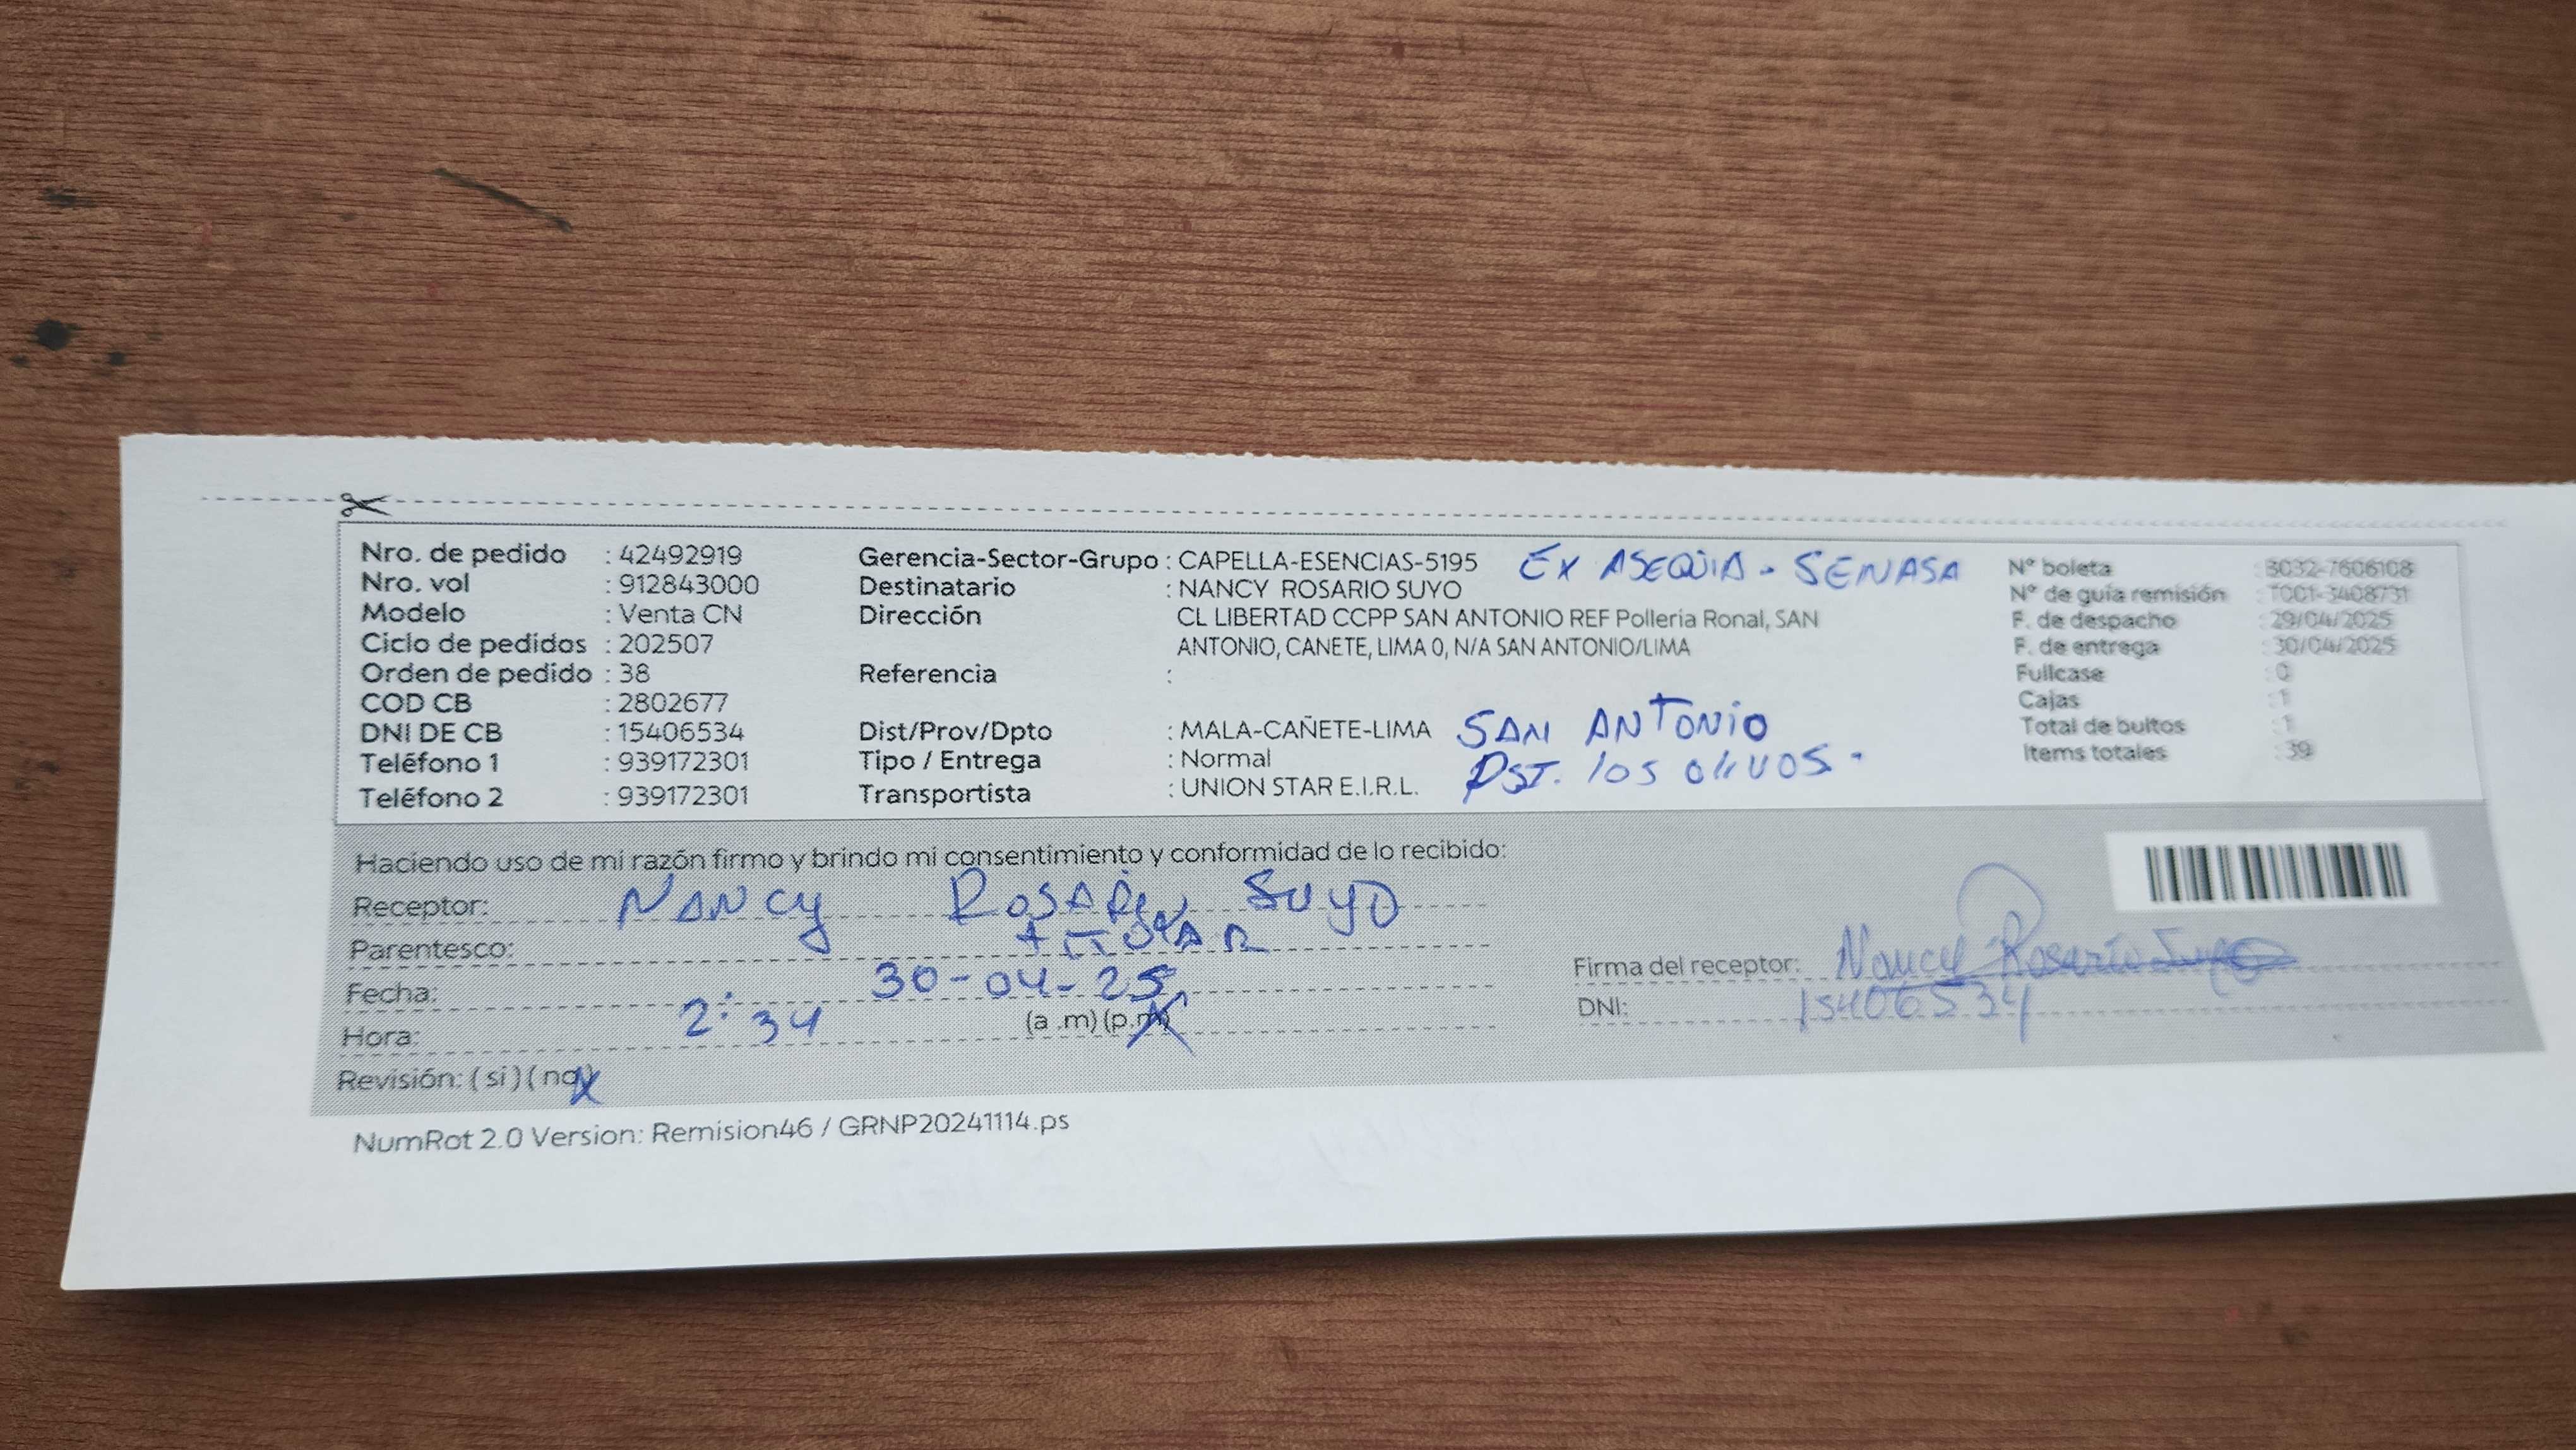 Nro. de pedido : 42492919
Nro. vol : 912843000
Modelo : Venta CN
Ciclo de pedidos : 202507
Orden de pedido : 38
COD CB : 2802677
DNI DE CB : 15406534
Teléfono 1 : 939172301
Teléfono 2 : 939172301
Gerencia-Sector-Grupo : CAPELLA-ESENCIAS-5195 EX ASEQUIA - SENASA
Destinatario : NANCY ROSARIO SUYO
Dirección CL LIBERTAD CCPP SAN ANTONIO REF Polleria Ronal, SAN
ANTONIO, CANETE, LIMA 0, N/A SAN ANTONIO/LIMA
Referencia :
Dist/Prov/Dpto : MALA-CAÑETE-LIMA SAN ANTONIO
Tipo / Entrega : Normal
Transportista : UNION STAR E.I.R.L. PST. los olivos.
N° boleta : B032-7606108
N° de guía remisión : T001-3408731
F. de despacho : 29/04/2025
F. de entrega : 30/04/2025
Fullcase : 0
Cajas : 1
Total de bultos : 1
Items totales : 39
Haciendo uso de mi razón firmo y brindo mi consentimiento y conformidad de lo recibido:
Receptor: NANCY ROSARIO SUYO
Parentesco: TITULAR
Fecha: 30-04-25
Hora: 2:34 (a .m) (p.m)
Revisión: ( si ) ( no )
Firma del receptor: Nancy Rosario Suyo
DNI: 15406534
NumRot 2.0 Version: Remision46 / GRNP20241114.ps